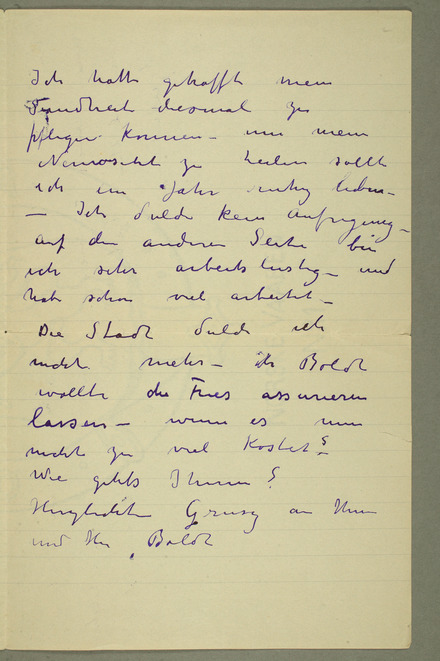 Ich hatte gehofft mein
Gesundheit diesmal zu
pflegen konnen – um mein
Nervosität zu heilen sollt
ich ein Jahr ruhig leben –
– Ich dulde kein Aufregung –
auf der anderen Seite bin
ich sehr arbeitslustig – und
habe schon viel arbeitet –
Die Stadt dulde ich
nicht mehr – Boldt
wollte die Fries
lassen – wenn es nun
nicht zu viel Kostet?
Wie gehts Ihnen?
Herzlichste Grusz an Ihnen
und Hr Boldt